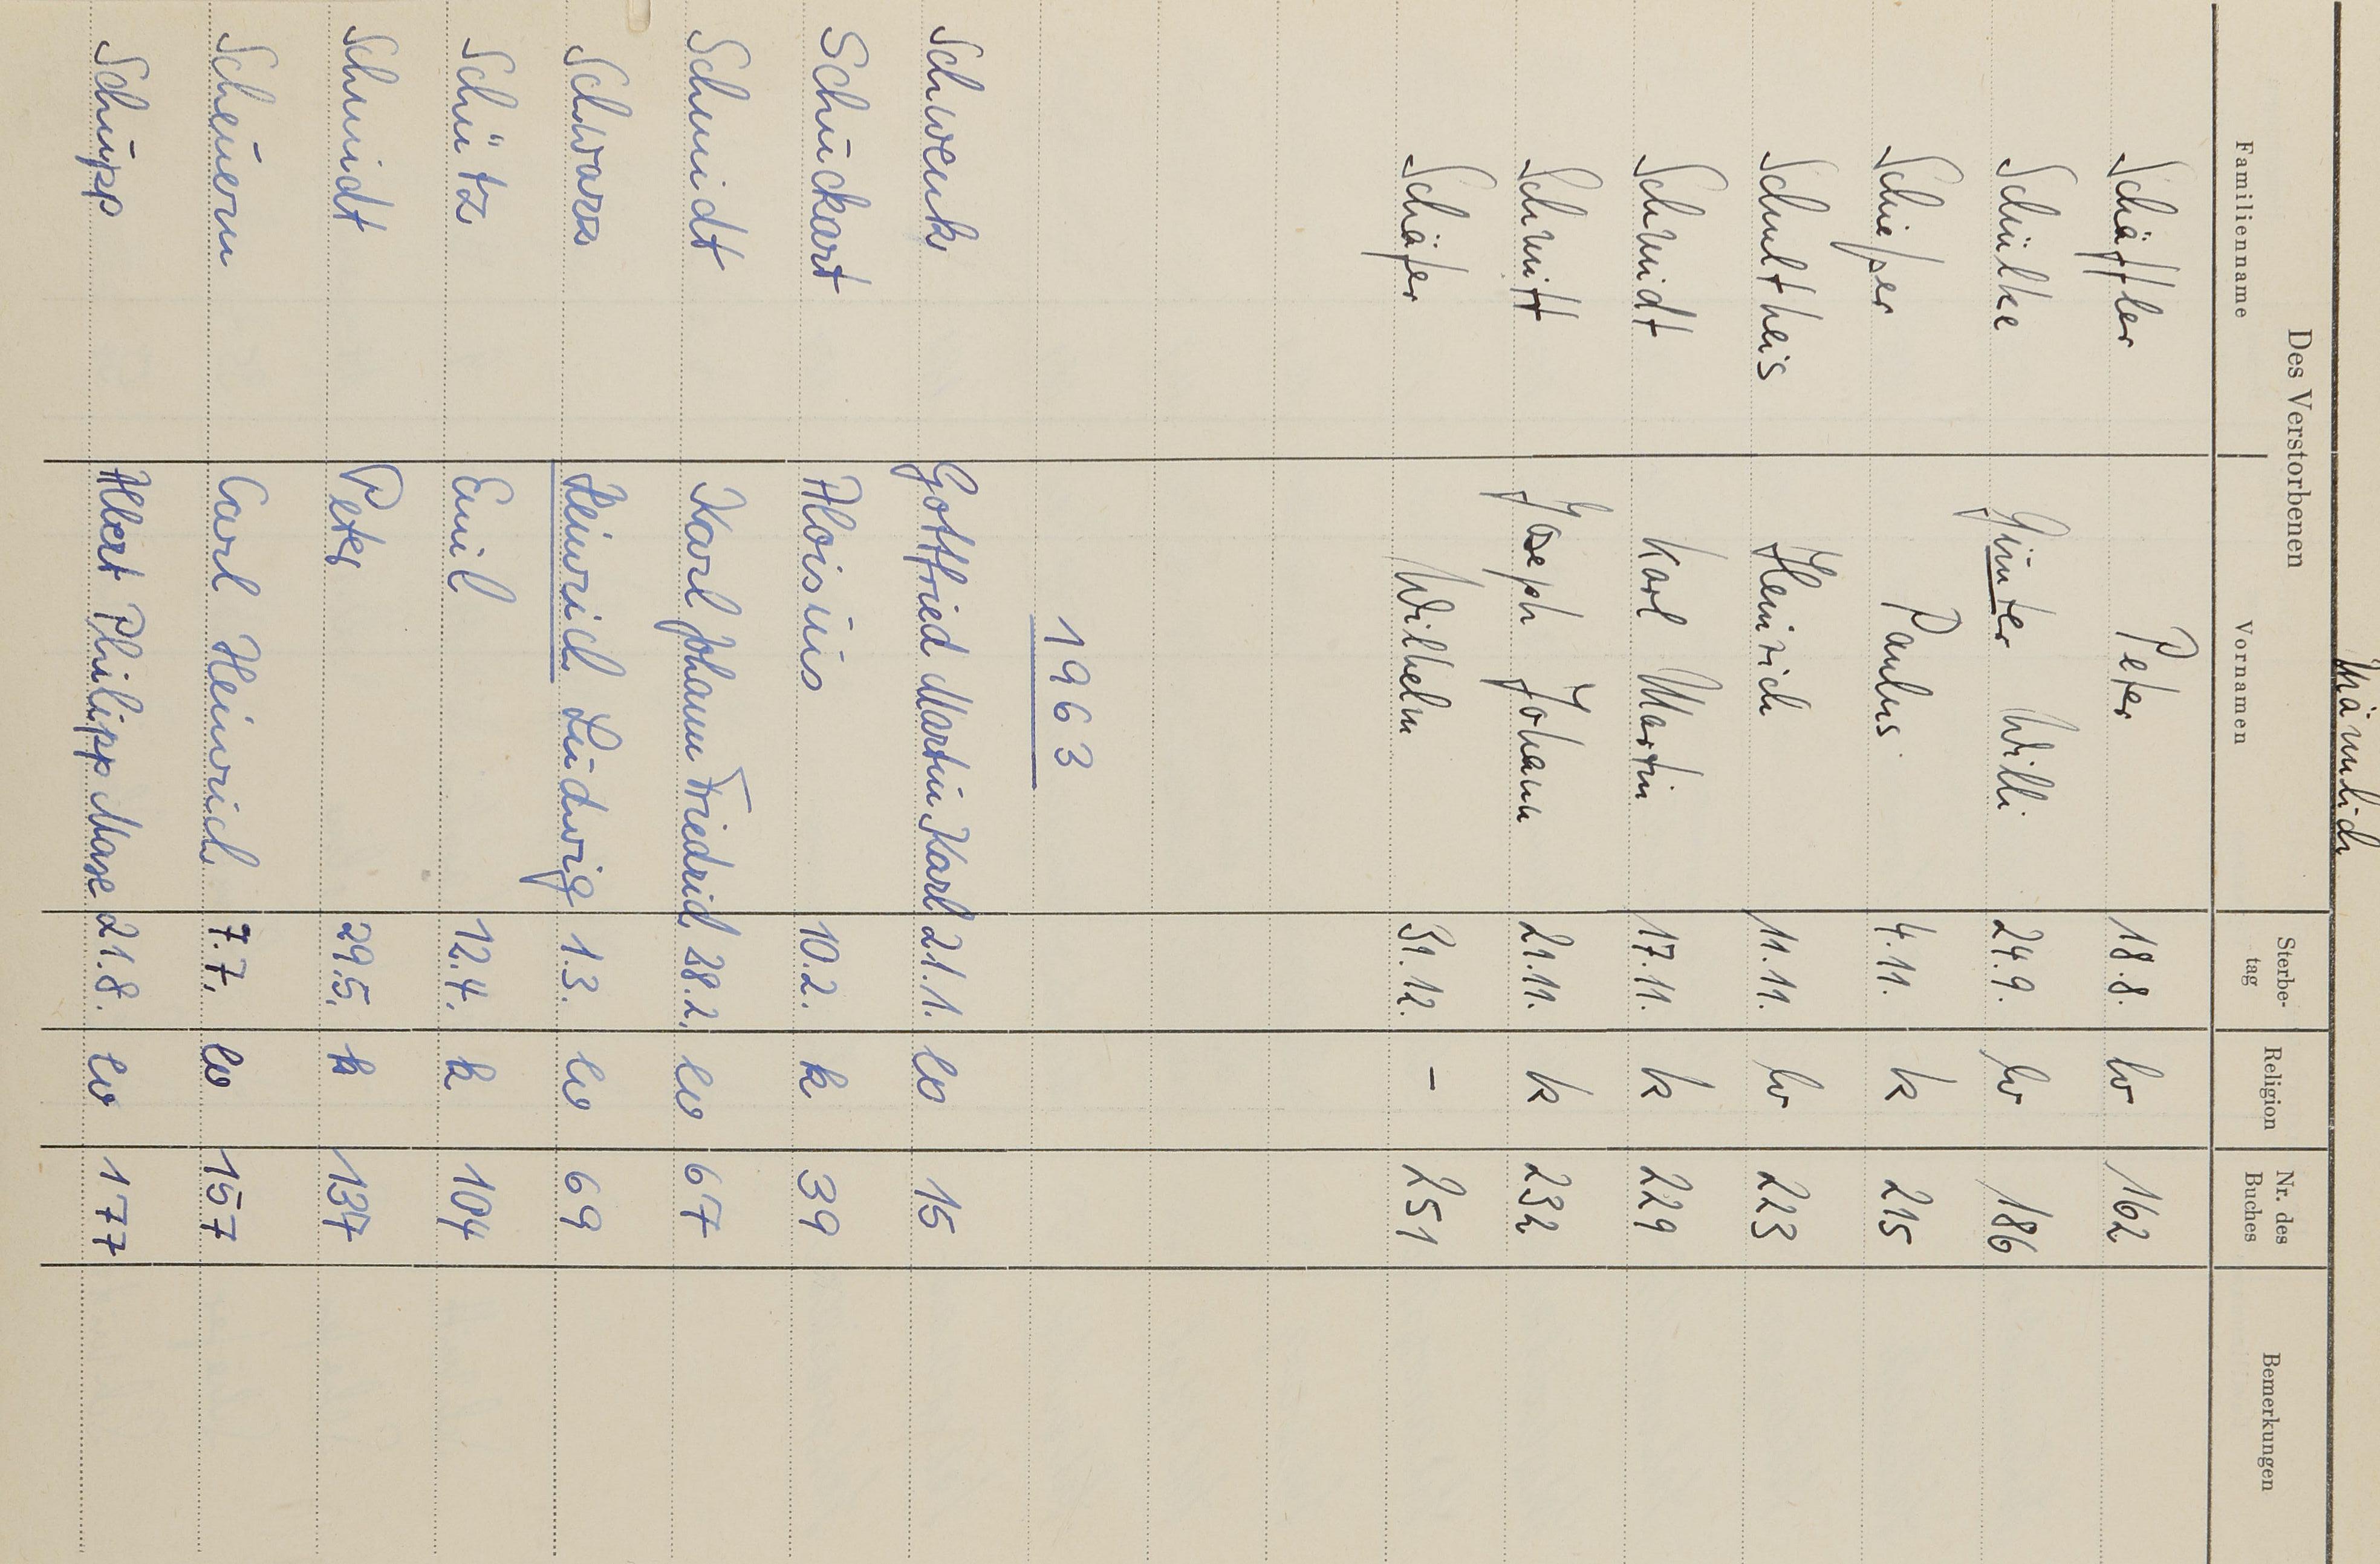 Männlich
Des Verstorbenen
Familienname Vornamen Sterbe-tag Religion Nr. des Buches Bemerkungen
Schäffler Peter 18.8. ev 162
Schülke Günter Willi 24.9. ev 186
Schießer Paulus 4.11. k 215
Schultheis Heinrich 11.11. ev 223
Schmidt Karl Martin 17.11. k 229
Schmitt Joseph Johann 21.11. k 232
Schäfer Wilhelm 31.12. – 251
1963
Schwenk Gottfried Martin Karl 21.1. ev 15
Schuckart Aloisius 10.2. k 39
Schmidt Karl Johann Friedrich 28.2. ev 67
Schwarz Heinrich Ludwig 1.3. ev 69
Schütz Emil 12.4. k 104
Schmidt Peter 29.5. k 137
Scheuern Carl Heinrich 7.7. ev 157
Schupp Albert Philipp Max 21.8. ev 177